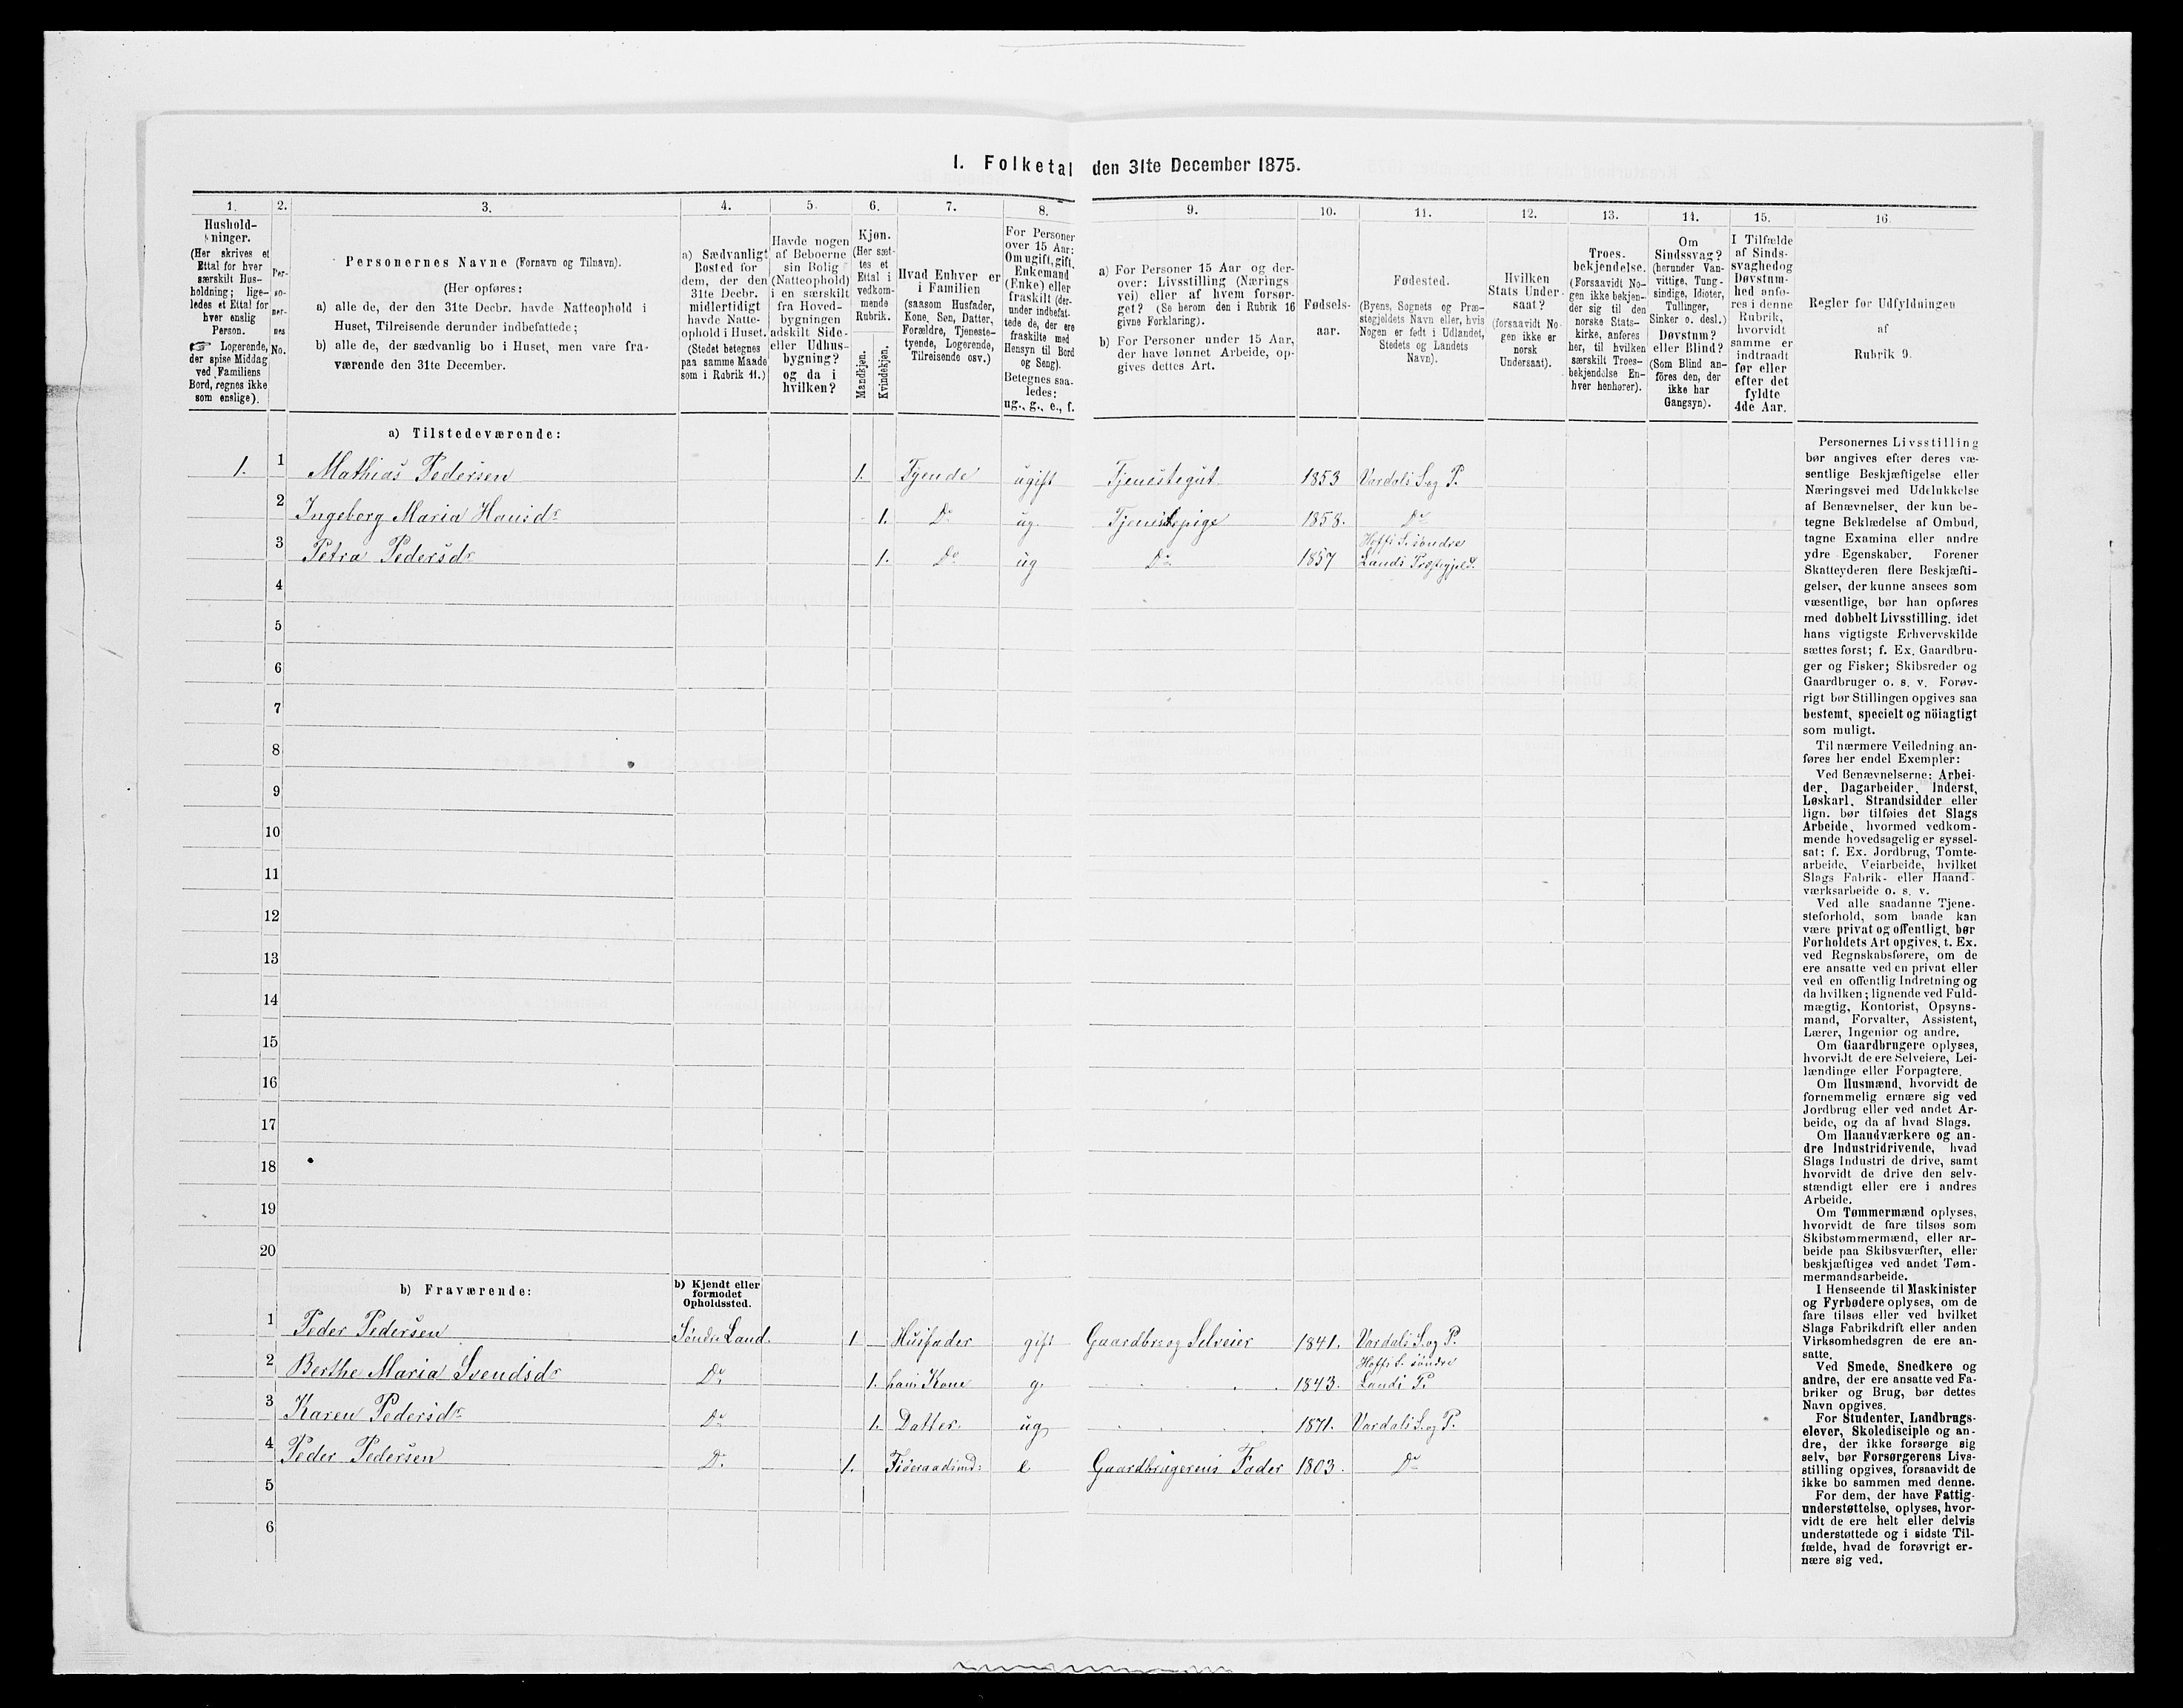 1. Folketal den 31te December 1875.
1.
Hushold-
ninger.
(Her skrives et
Ettal for hver
særskilt Hus-
holdning; lige-
ledes et Ettal for
hver enslig
Person.
☞ Logerende,
der spise Middag
ved Familiens
Bord, regnes ikke
som enslige).
2.
Per-
so-
ner-
nes
No.
3.
Personernes Navne (Fornavn og Tilnavn).
(Her opføres:
a) alle de, der den 31te Decbr. havde Natteophold i
Huset, Tilreisende derunder indbefattede;
b) alle de, der sædvanlig bo i Huset, men vare fra-
værende den 31te December.
4.
a) Sædvanligt
Bosted for
dem, der den
31te Decbr.
midlertidigt
havde Natte-
ophold i Huset.
(Stedet betegnes
paa samme Maade
som i Rubrik 11.)
5.
Havde nogen
af Beboerne
sin Bolig
(Natteophold)
i en særskilt
fra Hoved-
bygningen
adskilt Side-
eller Udhus-
bygning?
og da i
hvilken?
6.
Kjøn.
(Her sæt-
tes et
Ettal i
vedkom-
mende
Rubrik.
Mandkjøn.
Kvindekjøn.
7.
Hvad Enhver er
i Familien
(saasom Husfader,
Kone, Søn, Datter,
Forældre, Tjeneste-
tyende, Logerende,
Tilreisende osv.)
8.
For Personer
over 15 Aar:
Om ugift, gift,
Enkemand
(Enke) eller
fraskilt (der-
under indbefat-
tede de, der ere
fraskilte med
Hensyn til Bord
og Seng).
Betegnes saa-
ledes:
ug., g., e., f.
9.
a) For Personer 15 Aar og der-
over: Livsstilling (Nærings-
vei) eller af hvem forsør-
get? (Se herom den i Rubrik 16
givne Forklaring).
b) For Personer under 15 Aar,
der have lønnet Arbeide, op-
gives dettes Art.
10.
Fødsels-
aar.
11.
Fødested.
(Byens, Sognets og Præ-
stegjeldets Navn eller, hvis
Nogen er født i Udlandet,
Stedets og Landets
Navn).
12.
Hvilken
Stats Under-
saat?
(forsaavidt No-
gen ikke er
norsk
Undersaat).
13.
Troes-
bekjendelse.
(Forsaavidt No-
gen ikke bekjen-
der sig til den
norske Stats-
kirke, anføres
her, til hvilken
særskilt Troes-
bekjendelse En-
hver henhører).
14.
Om
Sindssvag?
(herunder Van-
vittige, Tung-
sindige, Idioter,
Tullinger,
Sinker o. desl.)
Døvstum?
eller Blind?
(Som Blind an-
föres den, der
ikke har
Gangsyn).
15.
I Tilfælde
af Sinds-
svaghedog
Døvstum-
hed anfø-
res i denne
Rubrik,
hvorvidt
samme er
indtraadt
før eller
efter det
fyldte
4de Aar.
16.
Regler for Udfyldningen
af
Rubrik 9.
a) Tilstedeværende:
1. 1 Mathias Pedersen 1. Tyende ugift Tjenestegut 1853 Vardals S. og P.
2 Ingeborg Maria Hansdr 1. Do ug. Tjenestepige 1858. Do
3 Petra Pedersdr 1. Do ug Do 1857 Hoffs S. søndre
Lands Præstegjeld.
4
5
6
7
8
9
10
11
12
13
14
15
16
17
18
19
20
b) Fraværende:
b) Kjendt eller
formodet
Opholdssted.
1 Peder Pedersen Søndre Land. 1 Husfader gift Gaardbr. og Selveier 1841. Vardals S. og P.
2 Berthe Maria Svendsdr Do 1. hans Kone g. 1843. Hoffs S. søndre
Lands P.
3 Karen Pedersdr Do 1. Datter ug 1871. Vardals S. og P.
4 Peder Pedersen Do 1. e Gaardbrugerens Fader 1803. Do
5
6
Personernes Livsstilling
bør angives efter deres væ-
sentlige Beskjæftigelse eller
Næringsvei med Udelukkelse
af Benævnelser, der kun be-
tegne Beklædelse af Ombud,
tagne Examina eller andre
ydre Egenskaber. Forener
Skatteyderen flere Beskjæfti-
gelser, der kunne ansees som
væsentlige, bør han opføres
med dobbelt Livsstilling, idet
hans vigtigste Erhvervskilde
sættes først; f. Ex. Gaardbru-
ger og Fisker; Skibsreder og
Gaardbruger o. s. v. Forøv-
rigt bør Stillingen opgives saa
bestemt, specielt og nöiagtigt
som muligt.
Til nærmere Veiledning an-
føres her endel Exempler:
Ved Benævnelserne: Arbei-
der, Dagarbeider, Inderst,
Løskarl, Strandsidder eller
lign. bør tilføies det Slags
Arbeide, hvormed vedkom-
mende hovedsagelig er syssel-
sat; f. Ex. Jordbrug, Tomte-
arbeide, Veiarbeide, hvilket
Slags Fabrik- eller Haand-
værksarbeide o. s. v.
Ved alle saadanne Tjene-
steforhold, som baade kan
være privat og offentligt, bør
Forholdets Art opgives, t. Ex.
ved Regnskabsførere, om de
ere ansatte ved en privat eller
ved en offentlig Indretning og
da hvilken; lignende ved Fuld-
mægtig, Kontorist, Opsyns-
mand, Forvalter, Assistent,
Lærer, Ingeniør og andre.
Om Gaardbrugere oplyses,
hvorvidt de ere Selveiere, Lei-
lændinge eller Forpagtere.
Om Husmænd, hvorvidt de
fornemmelig ernære sig ved
Jordbrug eller ved andet Ar-
beide, og da af hvad Slags.
Om Haandværkere og an-
dre Industridrivende, hvad
Slags Industri de drive, samt
hvorvidt de drive den selv-
stændigt eller ere i andres
Arbeide.
Om Tømmermænd oplyses,
hvorvidt de fare tilsøs som
Skibstømmermænd, eller ar-
beide paa Skibsværfter, eller
beskjæftiges ved andet Tøm-
mermandsarbeide.
I Henseende til Maskinister
og Fyrbødere oplyses, om de
fare tilsøs eller ved hvilket
Slags Fabrikdrift eller anden
Virksomhedsgren de ere an-
satte.
Ved Smede, Snedkere og
andre, der ere ansatte ved Fa-
briker og Brug, bør dettes
Navn opgives.
For Studenter, Landbrugs-
elever, Skoledisciple og an-
dre, der ikke forsørge sig
selv, bør Forsørgerens Livs-
stilling opgives, forsaavidt de
ikke bo sammen med denne.
For dem, der have Fattig-
understøttelse, oplyses, hvor-
vidt de ere helt eller delvis
understøttede og i sidste Til-
fælde, hvad de forøvrigt er-
nære sig ved.